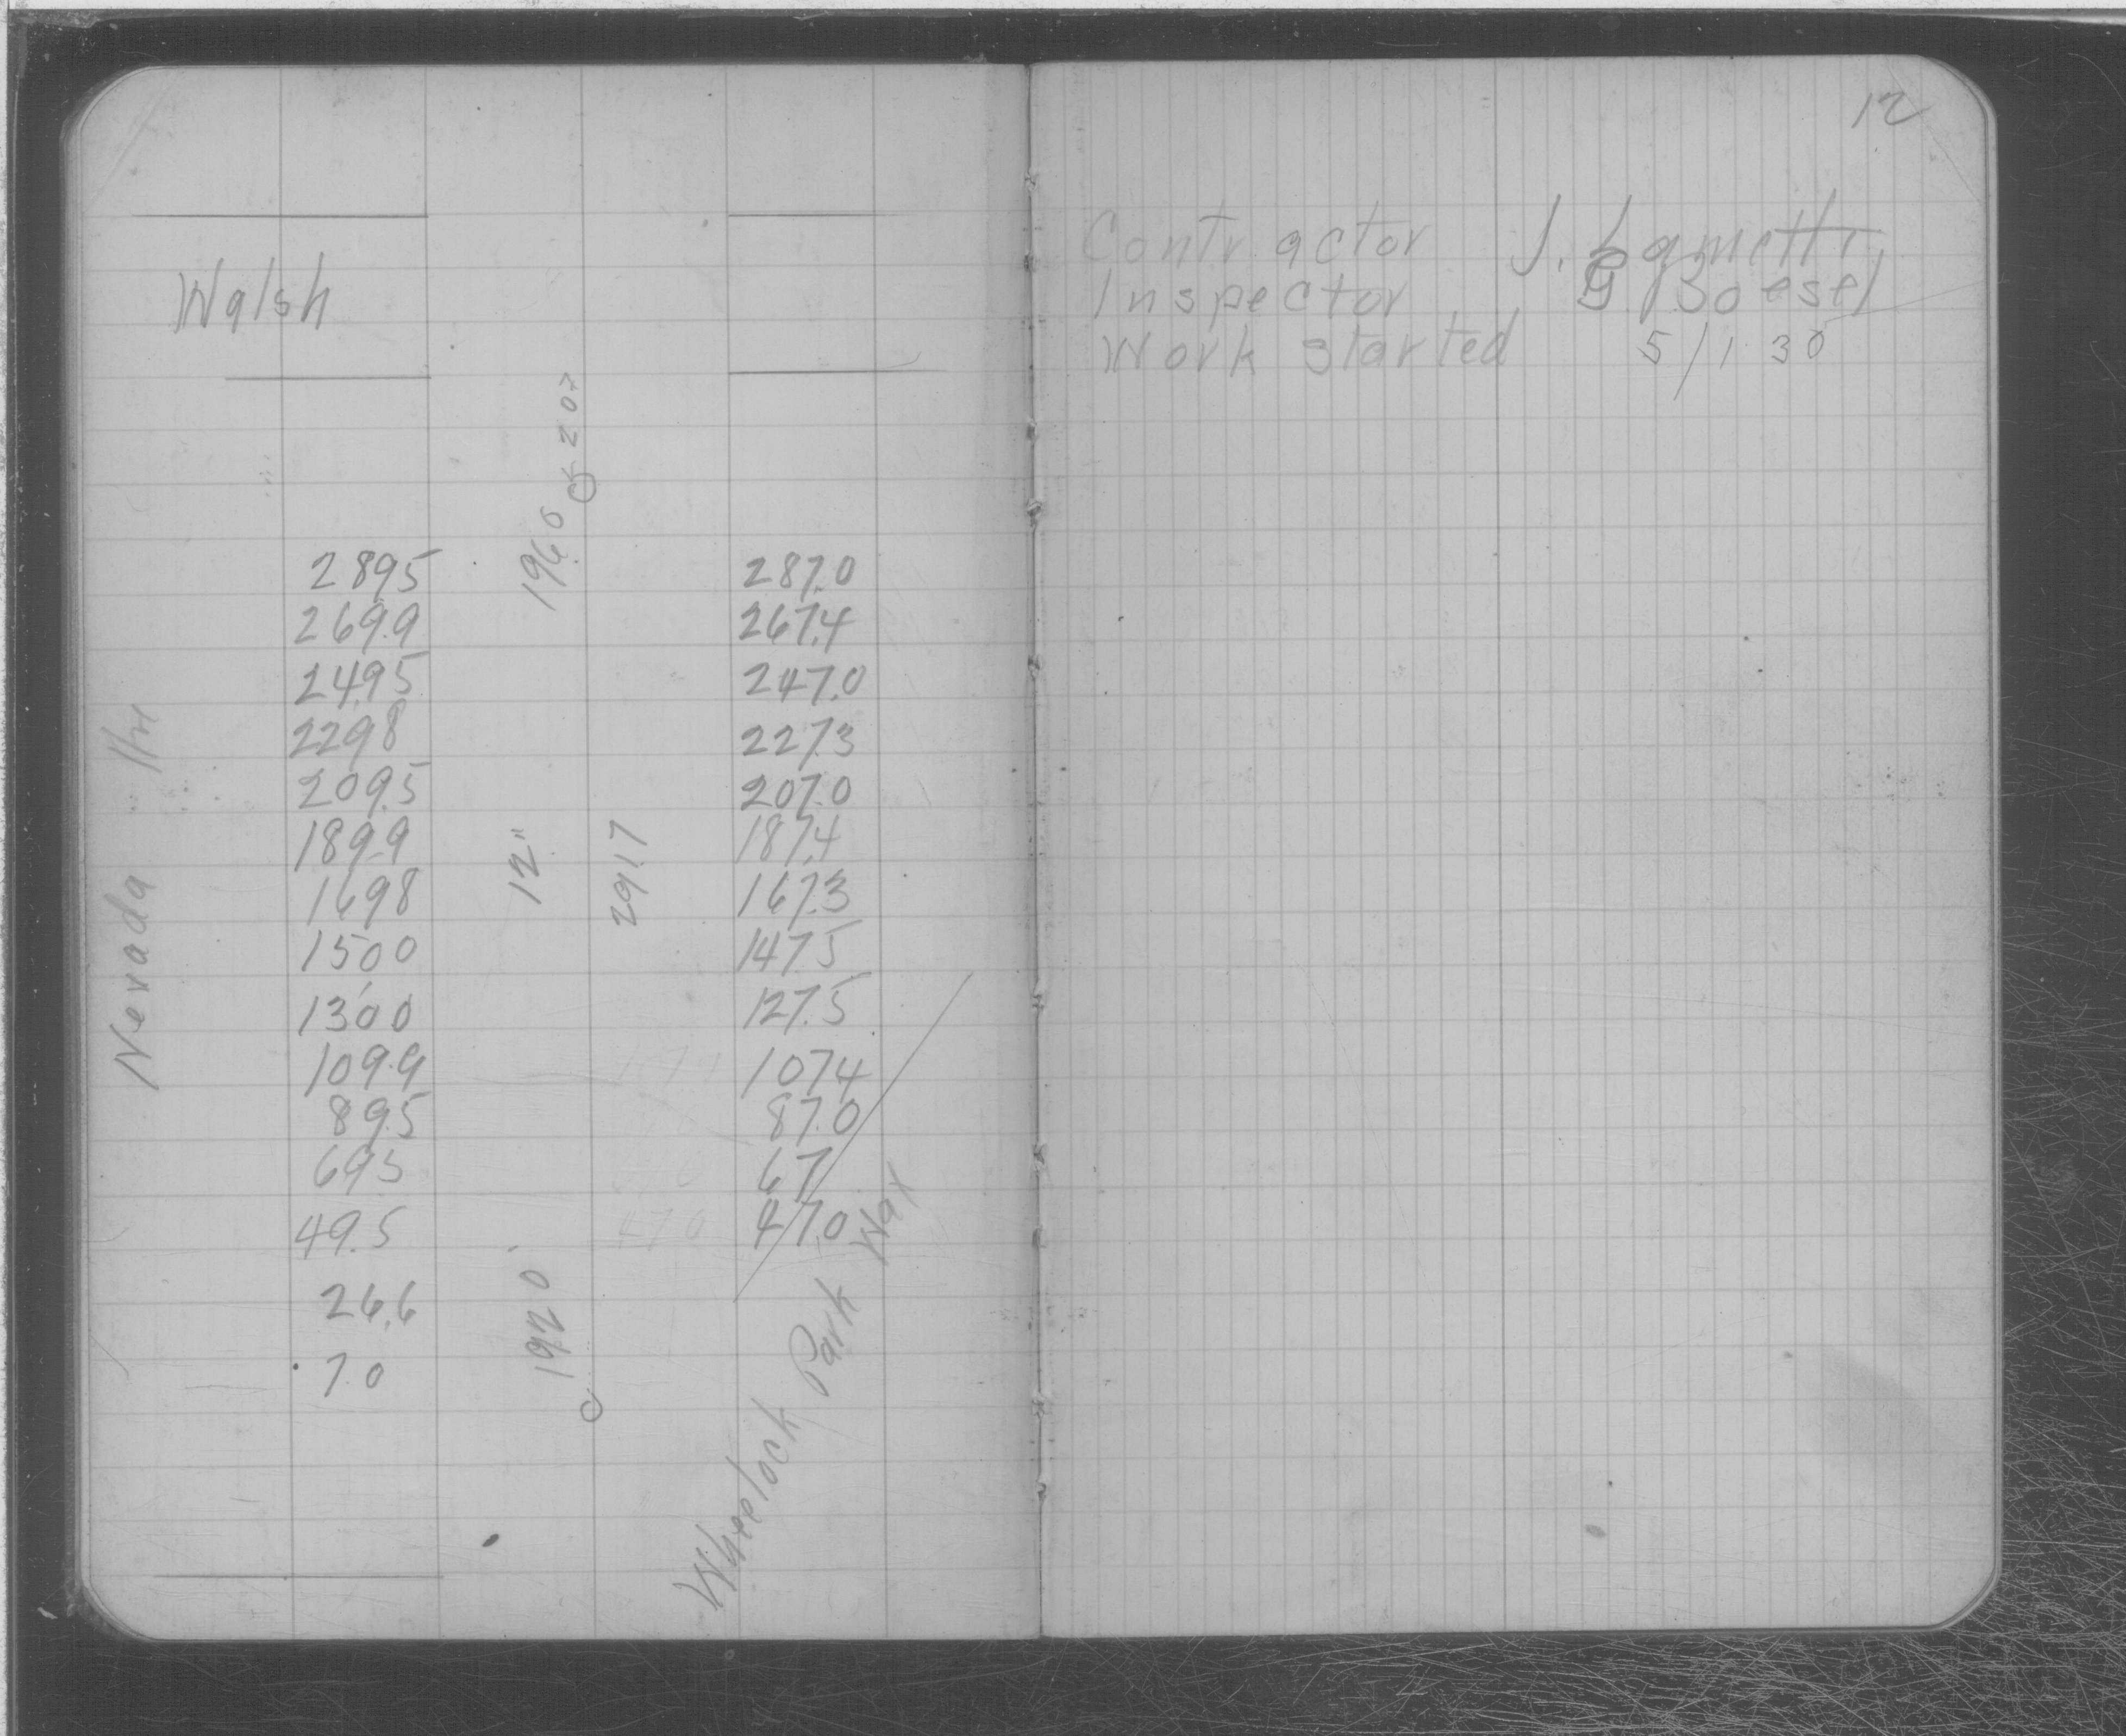 12
Contractor J. Lametti
Inspector G Boesel
Work started 5/1 30
Walsh
196.0
207
289.5 287.0
269.9 267.4
249.5 247.0
229.8 227.3
209.5 207.0
189.9 187.4
169.8 167.3
150.0 147.5
130.0 127.5
109.9 107.4
89.5 87.0
69.5 67
49.5 47.0
26.6
7.0
Nevada
12"
291.7
192.0
Wheelock Park Way